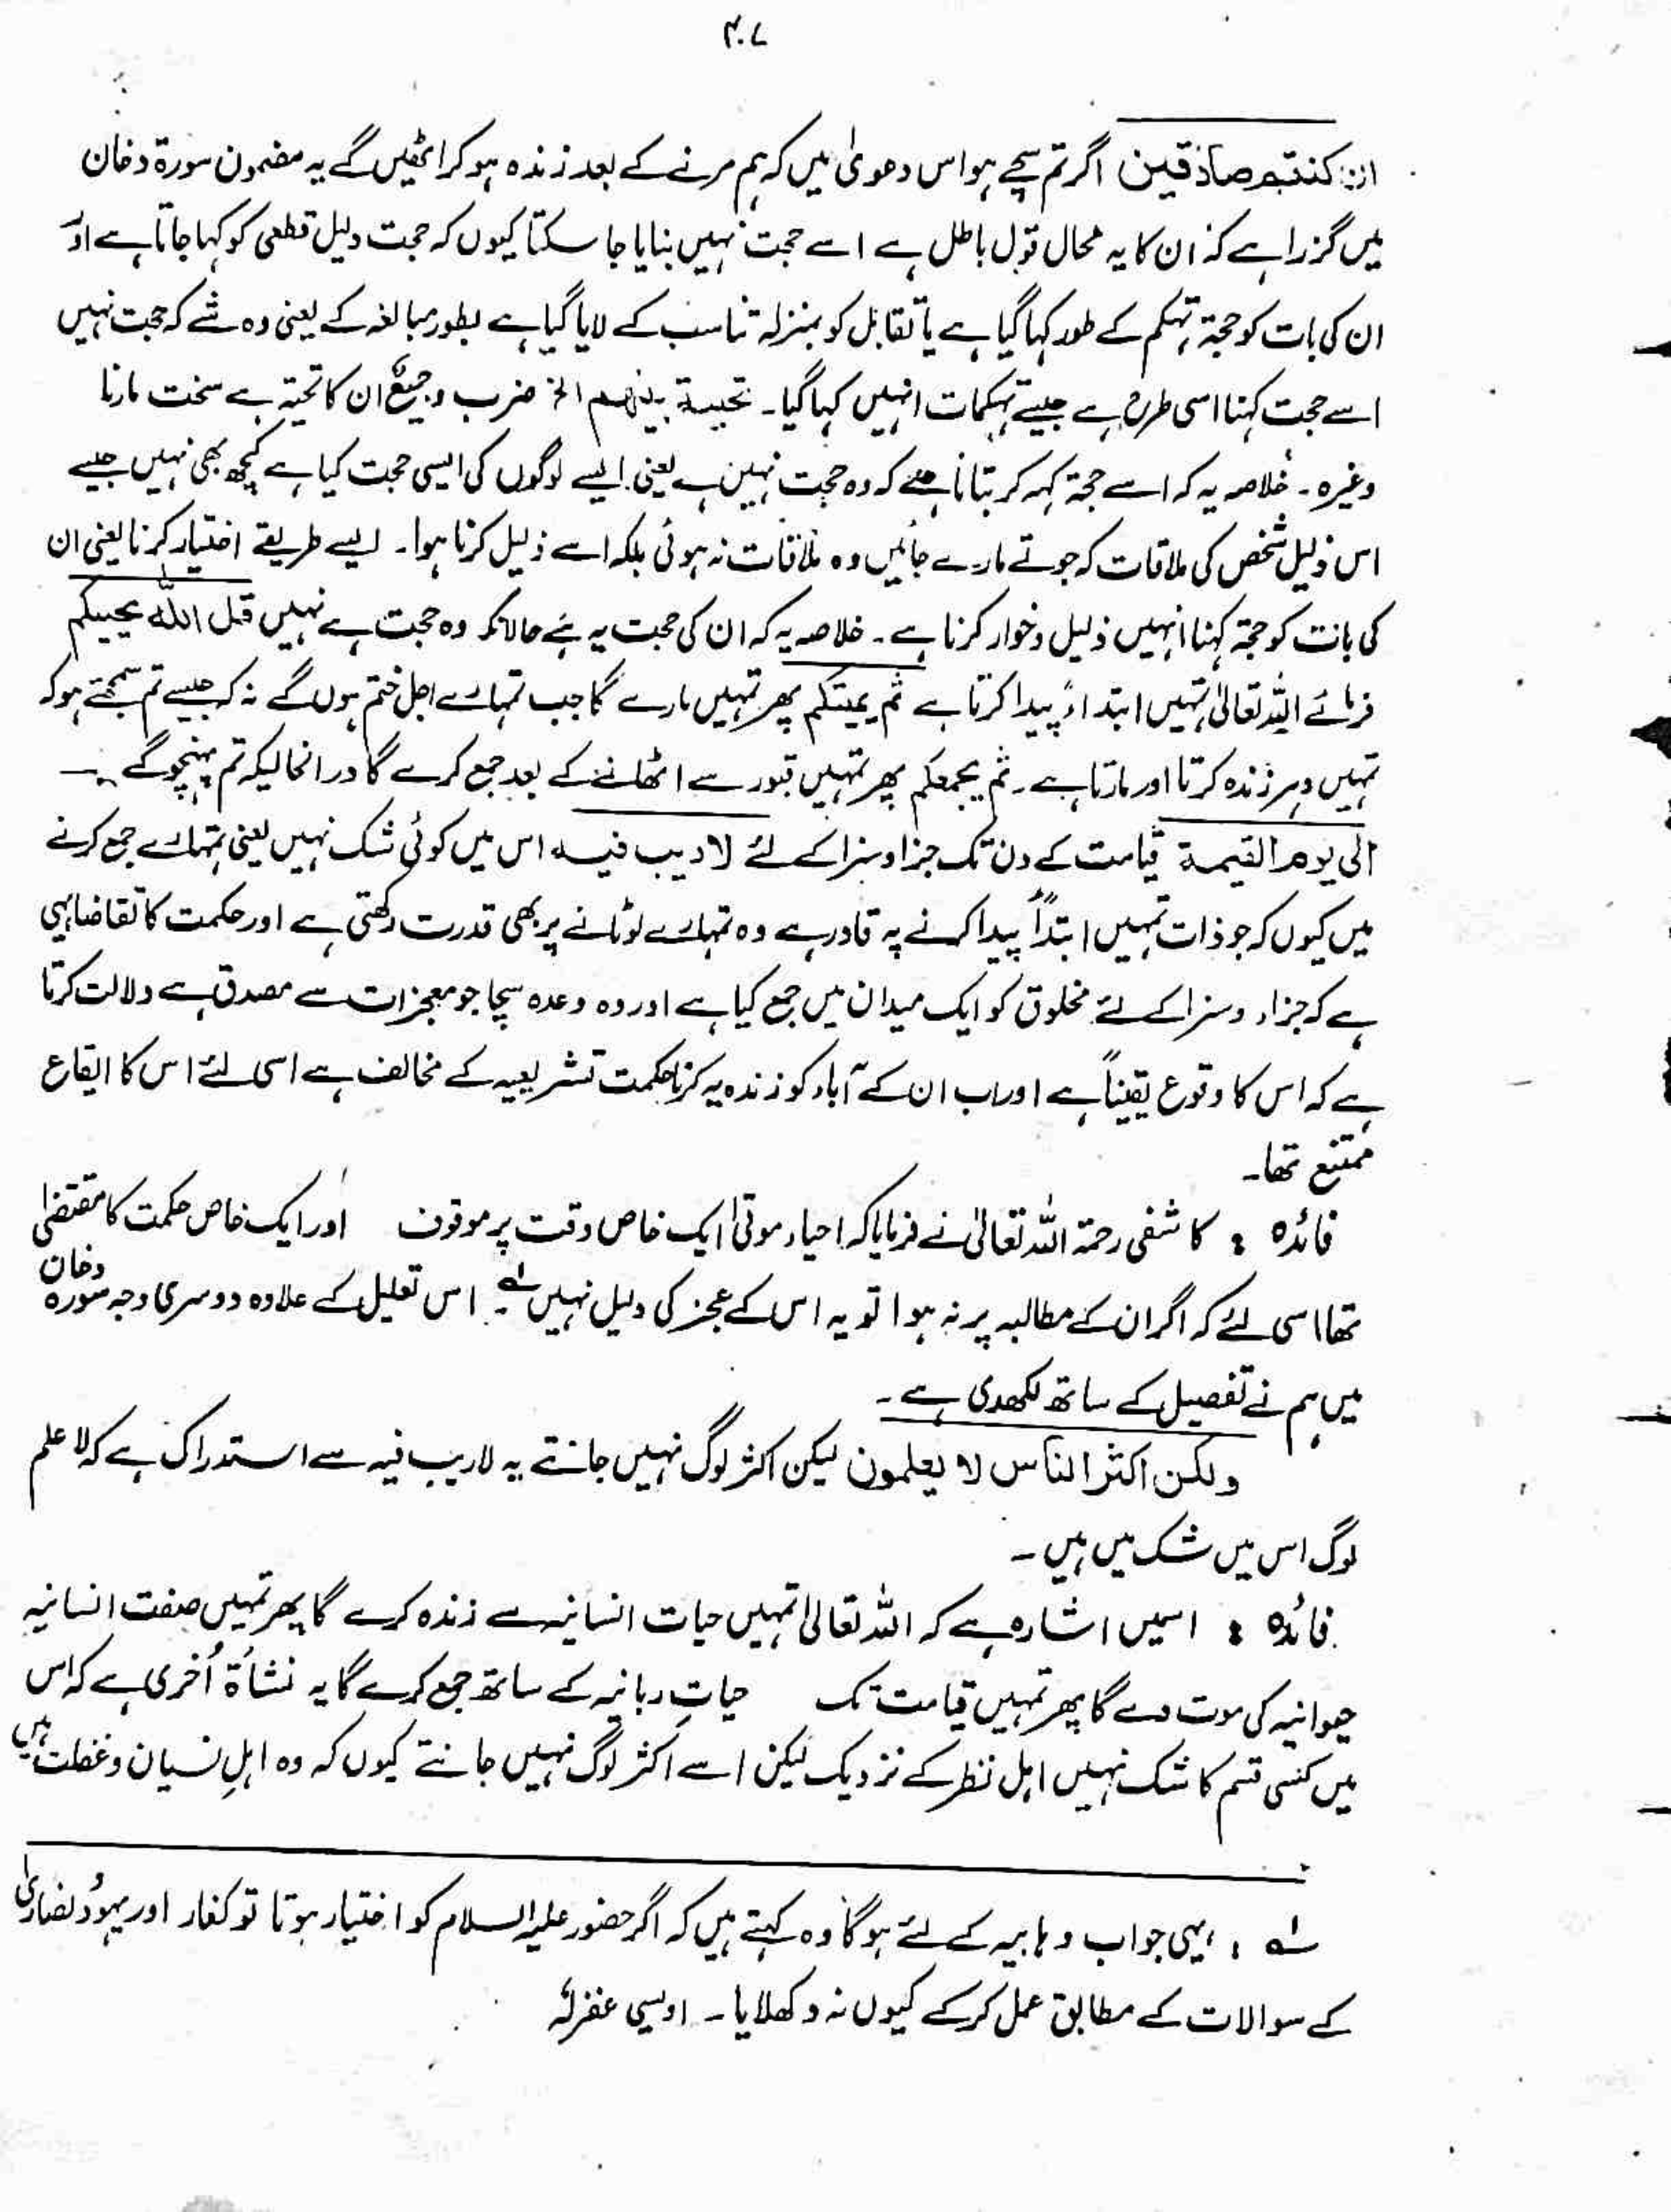 ۴۰۷
ان کنتم صادقین اگر تم سچے ہو اس دعویٰ میں کہ ہم مرنے کے بعد زندہ ہو کر اٹھیں گے یہ مضمون سورۃ دخان
میں گزرا ہے کہ ان کا یہ محال قول باطل ہے اسے حجت نہیں بنایا جا سکتا کیوں کہ حجت دلیل قطعی کو کہا جاتا ہے اور
ان کی بات کو حجۃ تہکم کے طور کہا گیا ہے یا تقابل کو بمنزلہ تناسب کے لایا گیا ہے بطور مبالغہ کے یعنی وہ شے کہ حجت نہیں
اسے حجت کہنا اسی طرح ہے جیسے تہکمات انہیں کہا گیا۔ تحیۃ بینھم الخ ضرب وجیعٌ ان کا تحیۃ ہے سخت مارنا
وغیرہ۔ خلاصہ یہ کہ اسے حجۃ کہہ کر بتانا ہے کہ وہ حجت نہیں ہے یعنی ایسے لوگوں کی ایسی حجت کیا ہے کچھ بھی نہیں جیسے
اس ذلیل شخص کی ملاقات کہ جوتے مارے جائیں وہ ملاقات نہ ہوئی بلکہ اسے ذلیل کرنا ہوا۔ ایسے طریقے اختیار کرنا یعنی ان
کی بات کو حجۃ کہنا انہیں ذلیل و خوار کرنا ہے۔ خلاصہ یہ کہ ان کی حجت یہ ہے حالانکہ وہ حجت ہے نہیں قل اللہ یحییکم
فرمائے اللہ تعالیٰ تمہیں ابتداءً پیدا کرتا ہے ثم یمیتکم پھر تمہیں مارے گا جب تمہارے اجل ختم ہوں گے نہ کہ جیسے تم سمجھتے ہو کہ
تمہیں دہر زندہ کرتا اور مارتا ہے۔ ثم یجمعکم پھر تمہیں قبور سے اٹھانے کے بعد جمع کرے گا درانحالیکہ تم پہنچو گے
الی یوم القیمۃ قیامت کے دن تک جزا و سزا کے لئے لا ریب فیہ اس میں کوئی شک نہیں یعنی تمہارے جمع کرنے
میں کیوں کہ جو ذات تمہیں ابتداً پیدا کرنے پہ قادر ہے وہ تمہارے لوٹانے پر بھی قدرت رکھتی ہے اور حکمت کا تقاضا یہی
ہے کہ جزاء و سزا کے لئے مخلوق کو ایک میدان میں جمع کیا ہے اور وہ وعدہ سچا جو معجزات سے مصدق ہے دلالت کرتا
ہے کہ اس کا وقوع یقیناً ہے اور اب ان کے آباء کو زندہ یہ کرنا حکمت تشریعیہ کے مخالف ہے اسی لئے اس کا ایقاع
ممتنع تھا۔
فائدہ : کاشفی رحمۃ اللہ تعالیٰ نے فرمایا کہ احیاء موتیٰ ایک خاص وقت پر موقوف اور ایک خاص حکمت کا مقتضیٰ
تھا اسی لئے کہ اگر ان کے مطالبہ پر نہ ہوا تو یہ اس کے عجز کی دلیل نہیں لہ۔ اس تعلیل کے علاوہ دوسری وجہ سورہ دخان
میں ہم نے تفصیل کے ساتھ لکھدی ہے۔
ولکن اکثر الناس لا یعلمون لیکن اکثر لوگ نہیں جانتے یہ لاریب فیہ سے استدراک ہے کہ لا علم
لوگ اس میں شک میں ہیں۔
فائدہ : اسمیں اشارہ ہے کہ اللہ تعالیٰ تمہیں حیات انسانیہ سے زندہ کرے گا پھر تمہیں صفت انسانیہ
حیوانیہ کی موت دے گا پھر تمہیں قیامت تک حیاتِ ربانیہ کے ساتھ جمع کرے گا یہ نشأۃ اُخریٰ ہے کہ اس
میں کسی قسم کا شک نہیں اہل نظر کے نزدیک لیکن اسے اکثر لوگ نہیں جانتے کیوں کہ وہ اہلِ نسیان و غفلت ہیں
لہ : یہی جواب وہابیہ کے لئے ہوگا وہ کہتے ہیں کہ اگر حضور علیہ السلام کو اختیار ہوتا تو کفار اور یہود و نصاریٰ
کے سوالات کے مطابق عمل کر کے کیوں نہ دکھلایا۔ اویسی غفرلہٗ